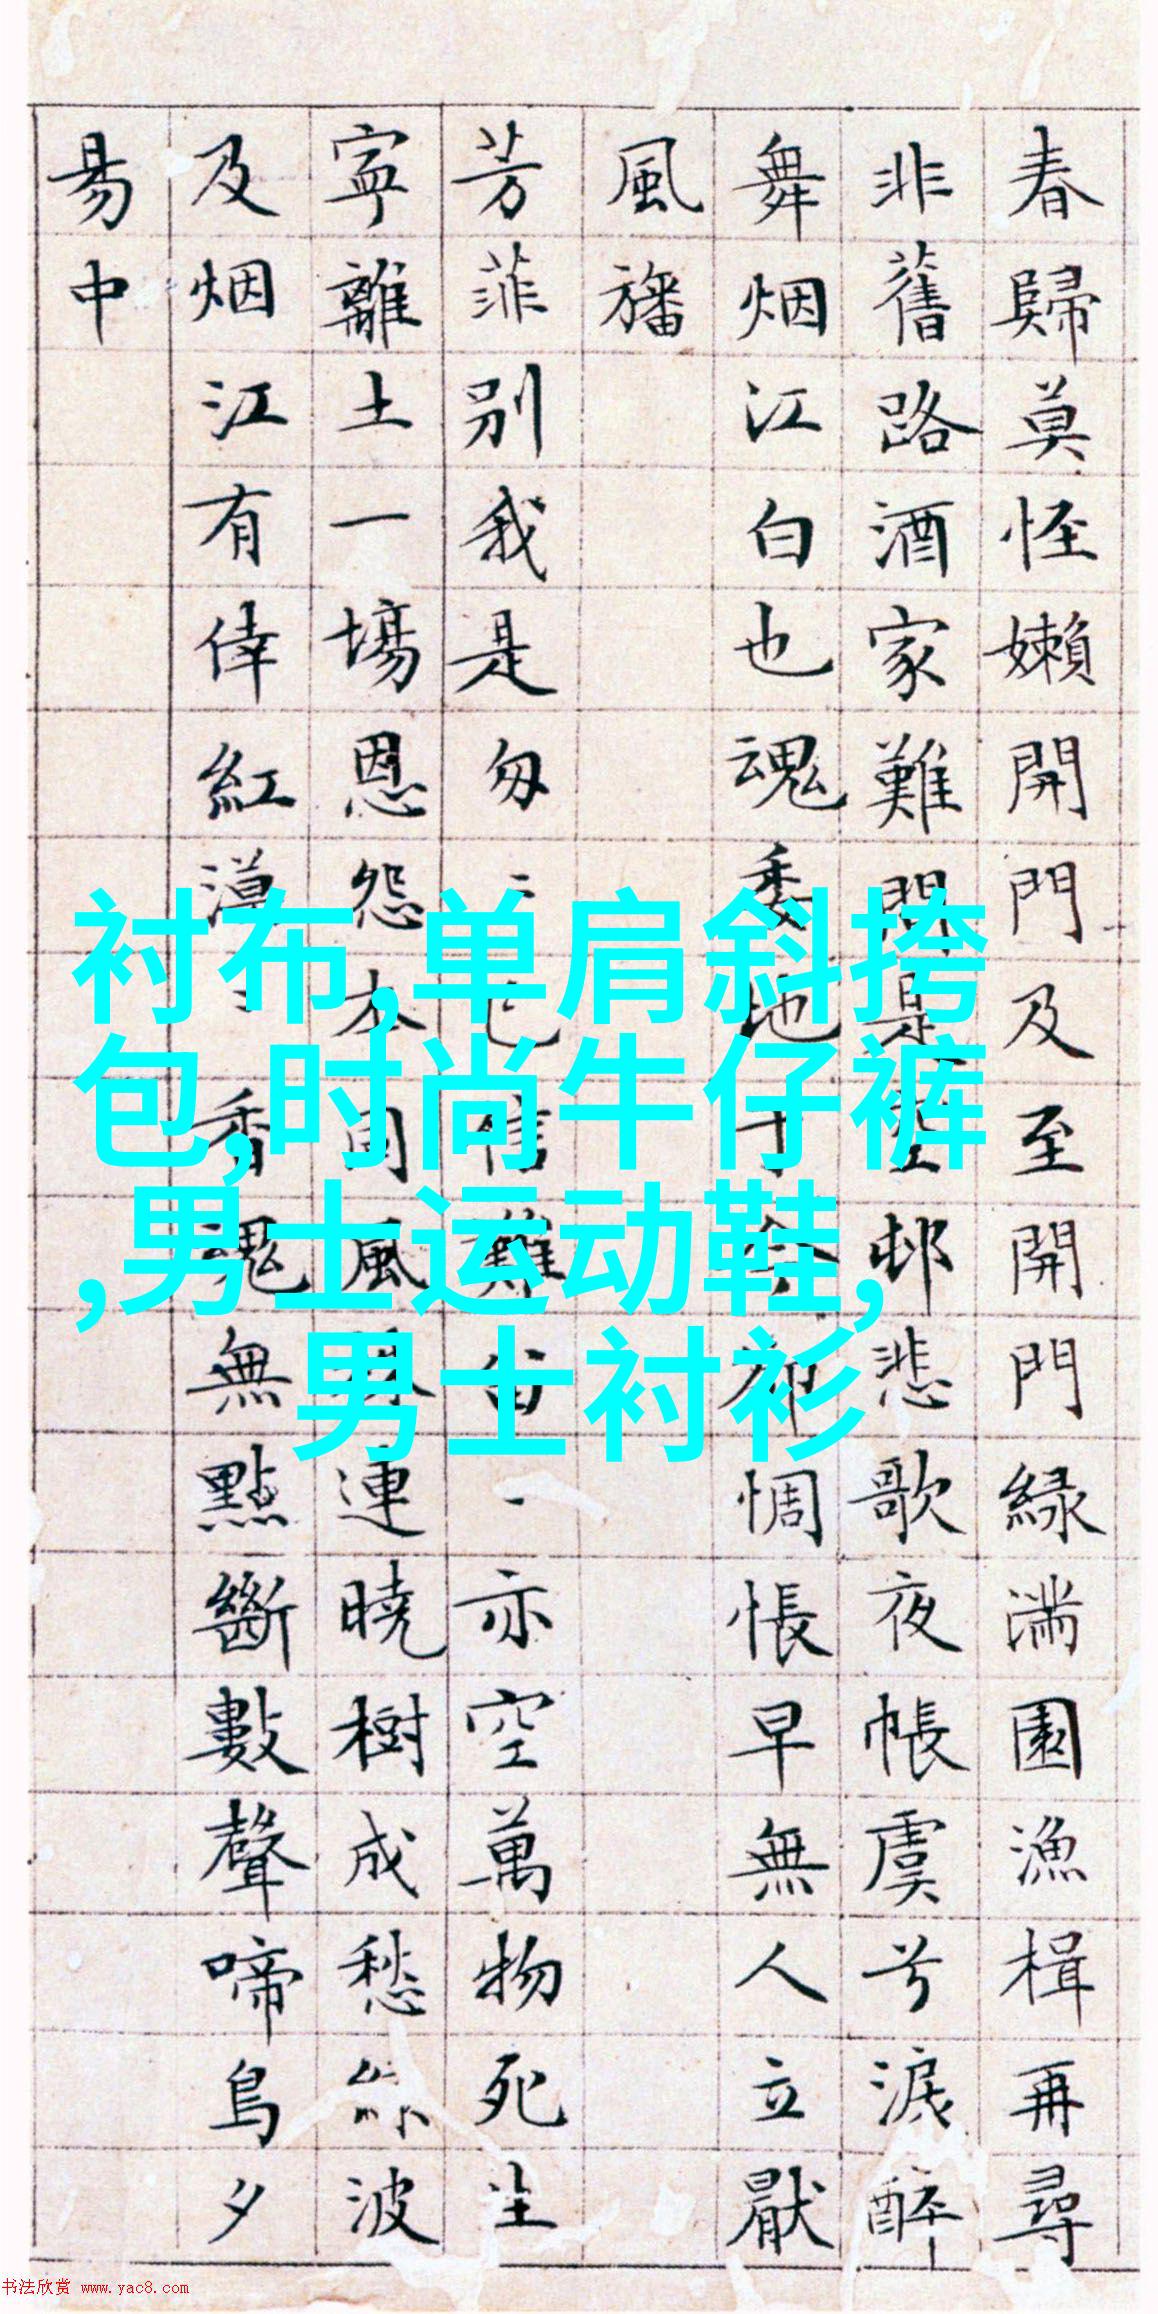 春歸莫怪嬾開門及至開門緑滿園漁楫再尋
非舊路酒家難問是空邨悲歌夜帳虞兮淚醉
舞烟江白也魂委地于今却惆悵早無人立厭
風旛
芳菲别我是匆已信難留亦空萬物死生
寧離土一場恩怨本同風連曉樹成愁波
及烟江有倖紅漠香魂無點斷數聲啼鳥夕
易中
衬布,单肩斜挎
包,时尚牛仔裤
,男士运动鞋,
男士衬衫
书法欣赏 www.yac8.com